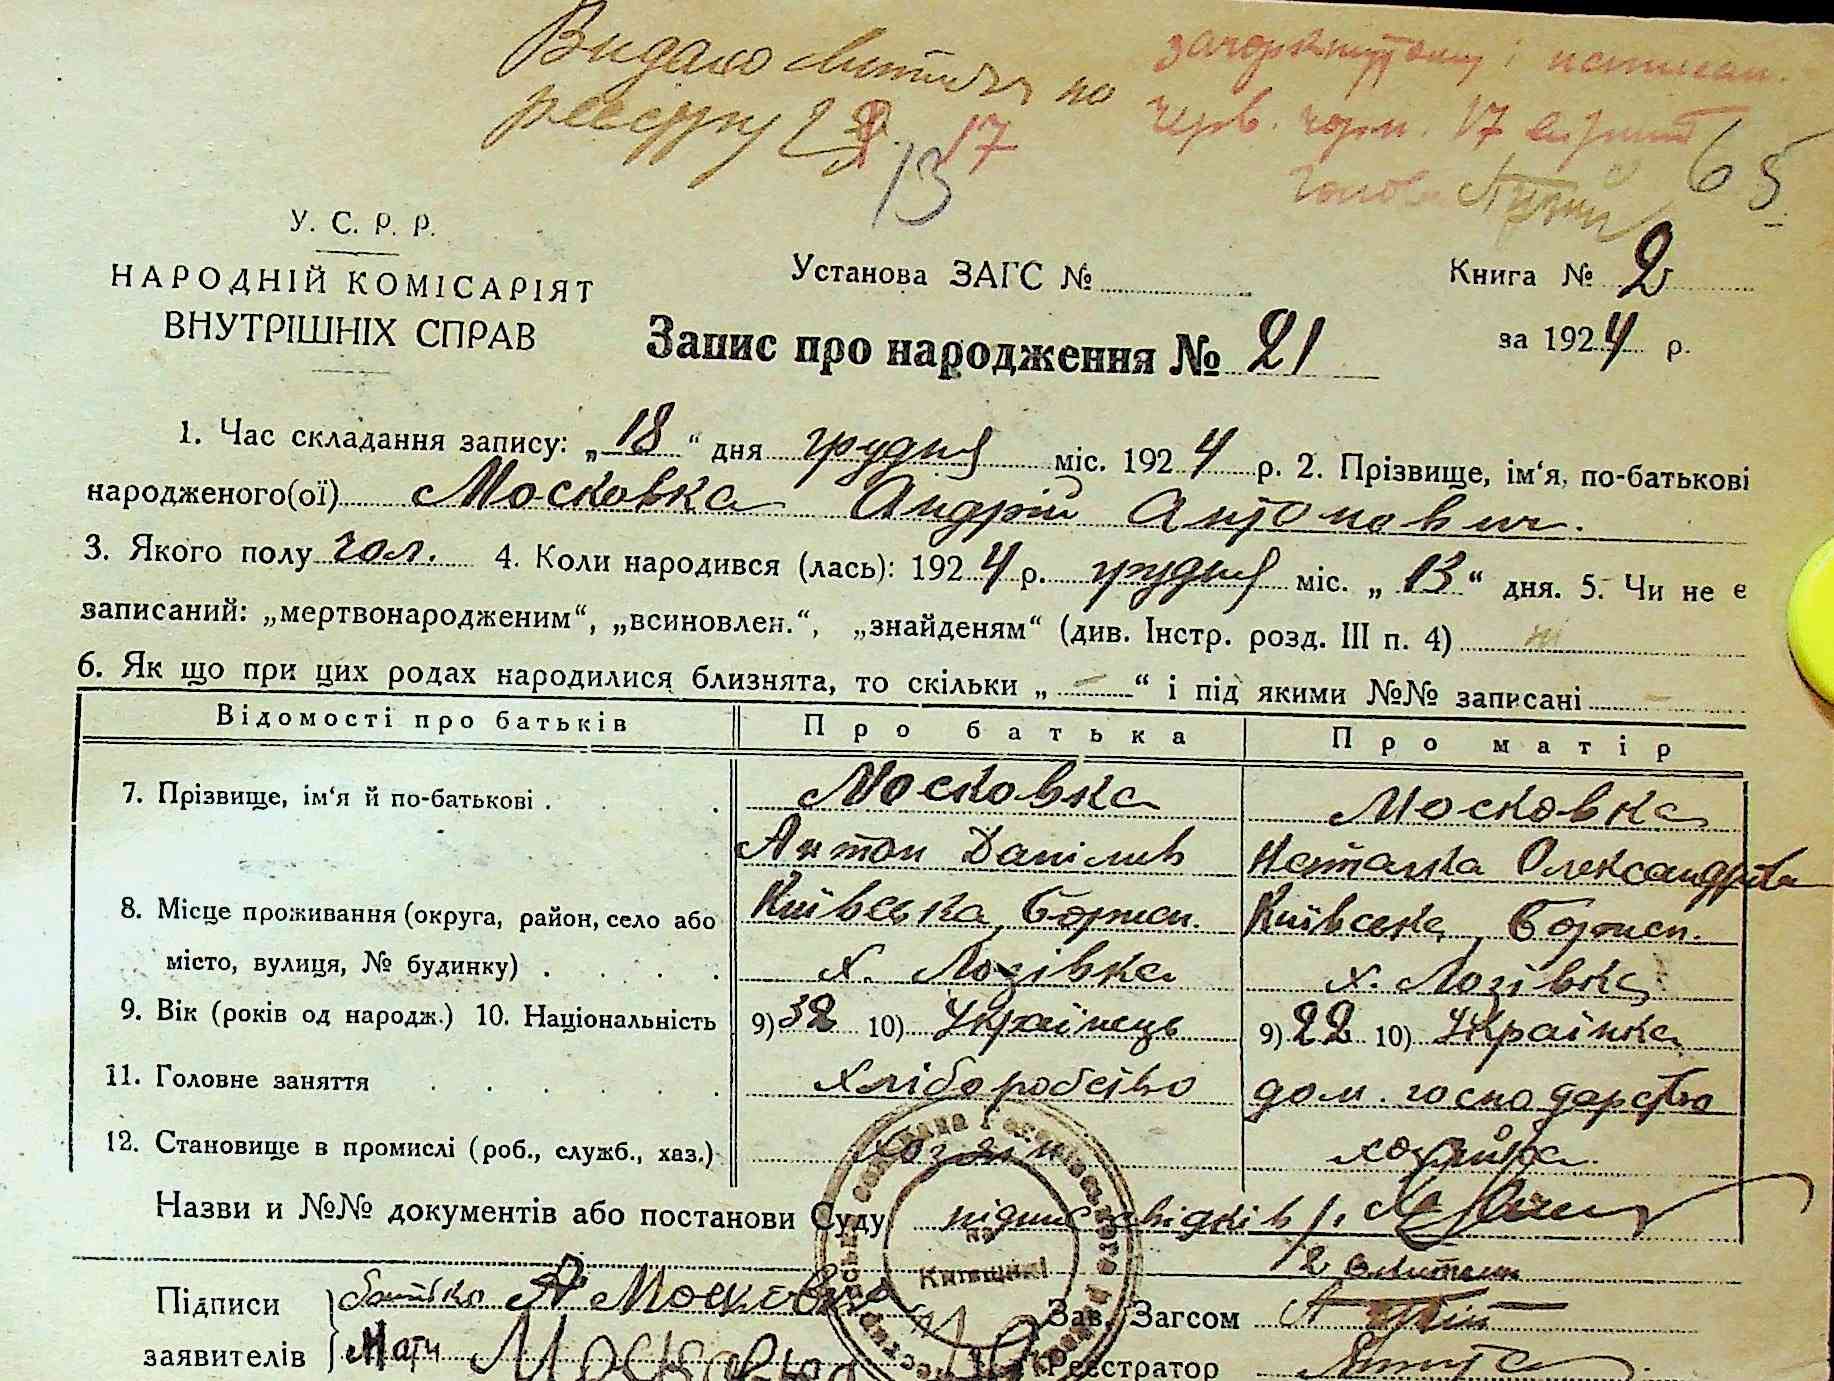 Видано витяг по
реєстру 2
17
13
зачеркнутому і написан.
черв. чорн. 17 вірит
голова
65
У. С. Р. Р.
НАРОДНІЙ КОМІСАРІЯТ
ВНУТРІШНІХ СПРАВ
Установа ЗАГС №
Книга № 2
за 1924 р.
Запис про народження № 21
1. Час складання запису: „18“ дня грудня міс. 1924 р. 2. Прізвище, ім‘я, по-батькові
народженого(ої) Московка Андрій Антонович.
3. Якого полу чол. 4. Коли народився (лась): 1924 р. грудня міс. „13“ дня. 5. Чи не є
записаний: „мертвонародженим“, „всиновлен.“, „знайденям“ (див. Інстр. розд. III п. 4) ні
6. Як що при цих родах народилися близнята, то скільки „ – “ і під якими №№ записані –
Відомості про батьків Про батька Про матір
7. Прізвище, ім‘я й по-батькові . . . . Московка Московка
Антон Данілів Наталка Олександрівна
8. Місце проживання (округа, район, село або Київська, Борисп. Київська, Борисп.
місто, вулиця, № будинку) . . . . х. Лозівка х. Лозівка
9. Вік (років од народж.) 10. Національність 9) 32 10) Українець 9) 22 10) Українка
11. Головне заняття . . . . . хліборобство дом. господарство
12. Становище в промислі (роб., служб., хаз.) хозяїн хозяйка.
Назви и №№ документів або постанови Суду підпис свідків 1.
2
на
Київщині
Підписи батько А Московка Зав. Загсом
заявителів Мати Московка Реєстратор